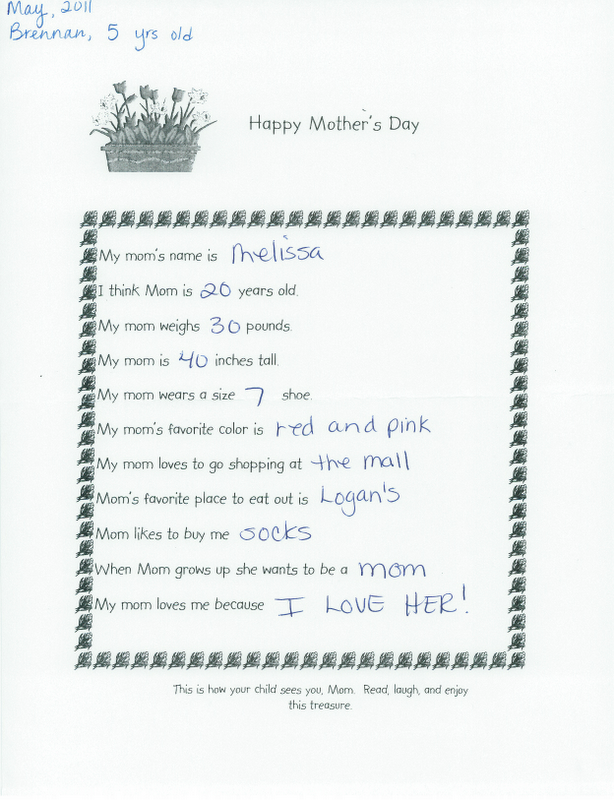 May, 2011
Brennan, 5 yrs old
Happy Mother's Day
My mom's name is Melissa
I think Mom is 20 years old.
My mom weighs 30 pounds.
My mom is 40 inches tall.
My mom wears a size 7 shoe.
My mom's favorite color is red and pink
My mom loves to go shopping at the mall
Mom's favorite place to eat out is Logan's
Mom likes to buy me socks
When Mom grows up she wants to be a mom
My mom loves me because I LOVE HER!
This is how your child sees you, Mom. Read, laugh, and enjoy
this treasure.